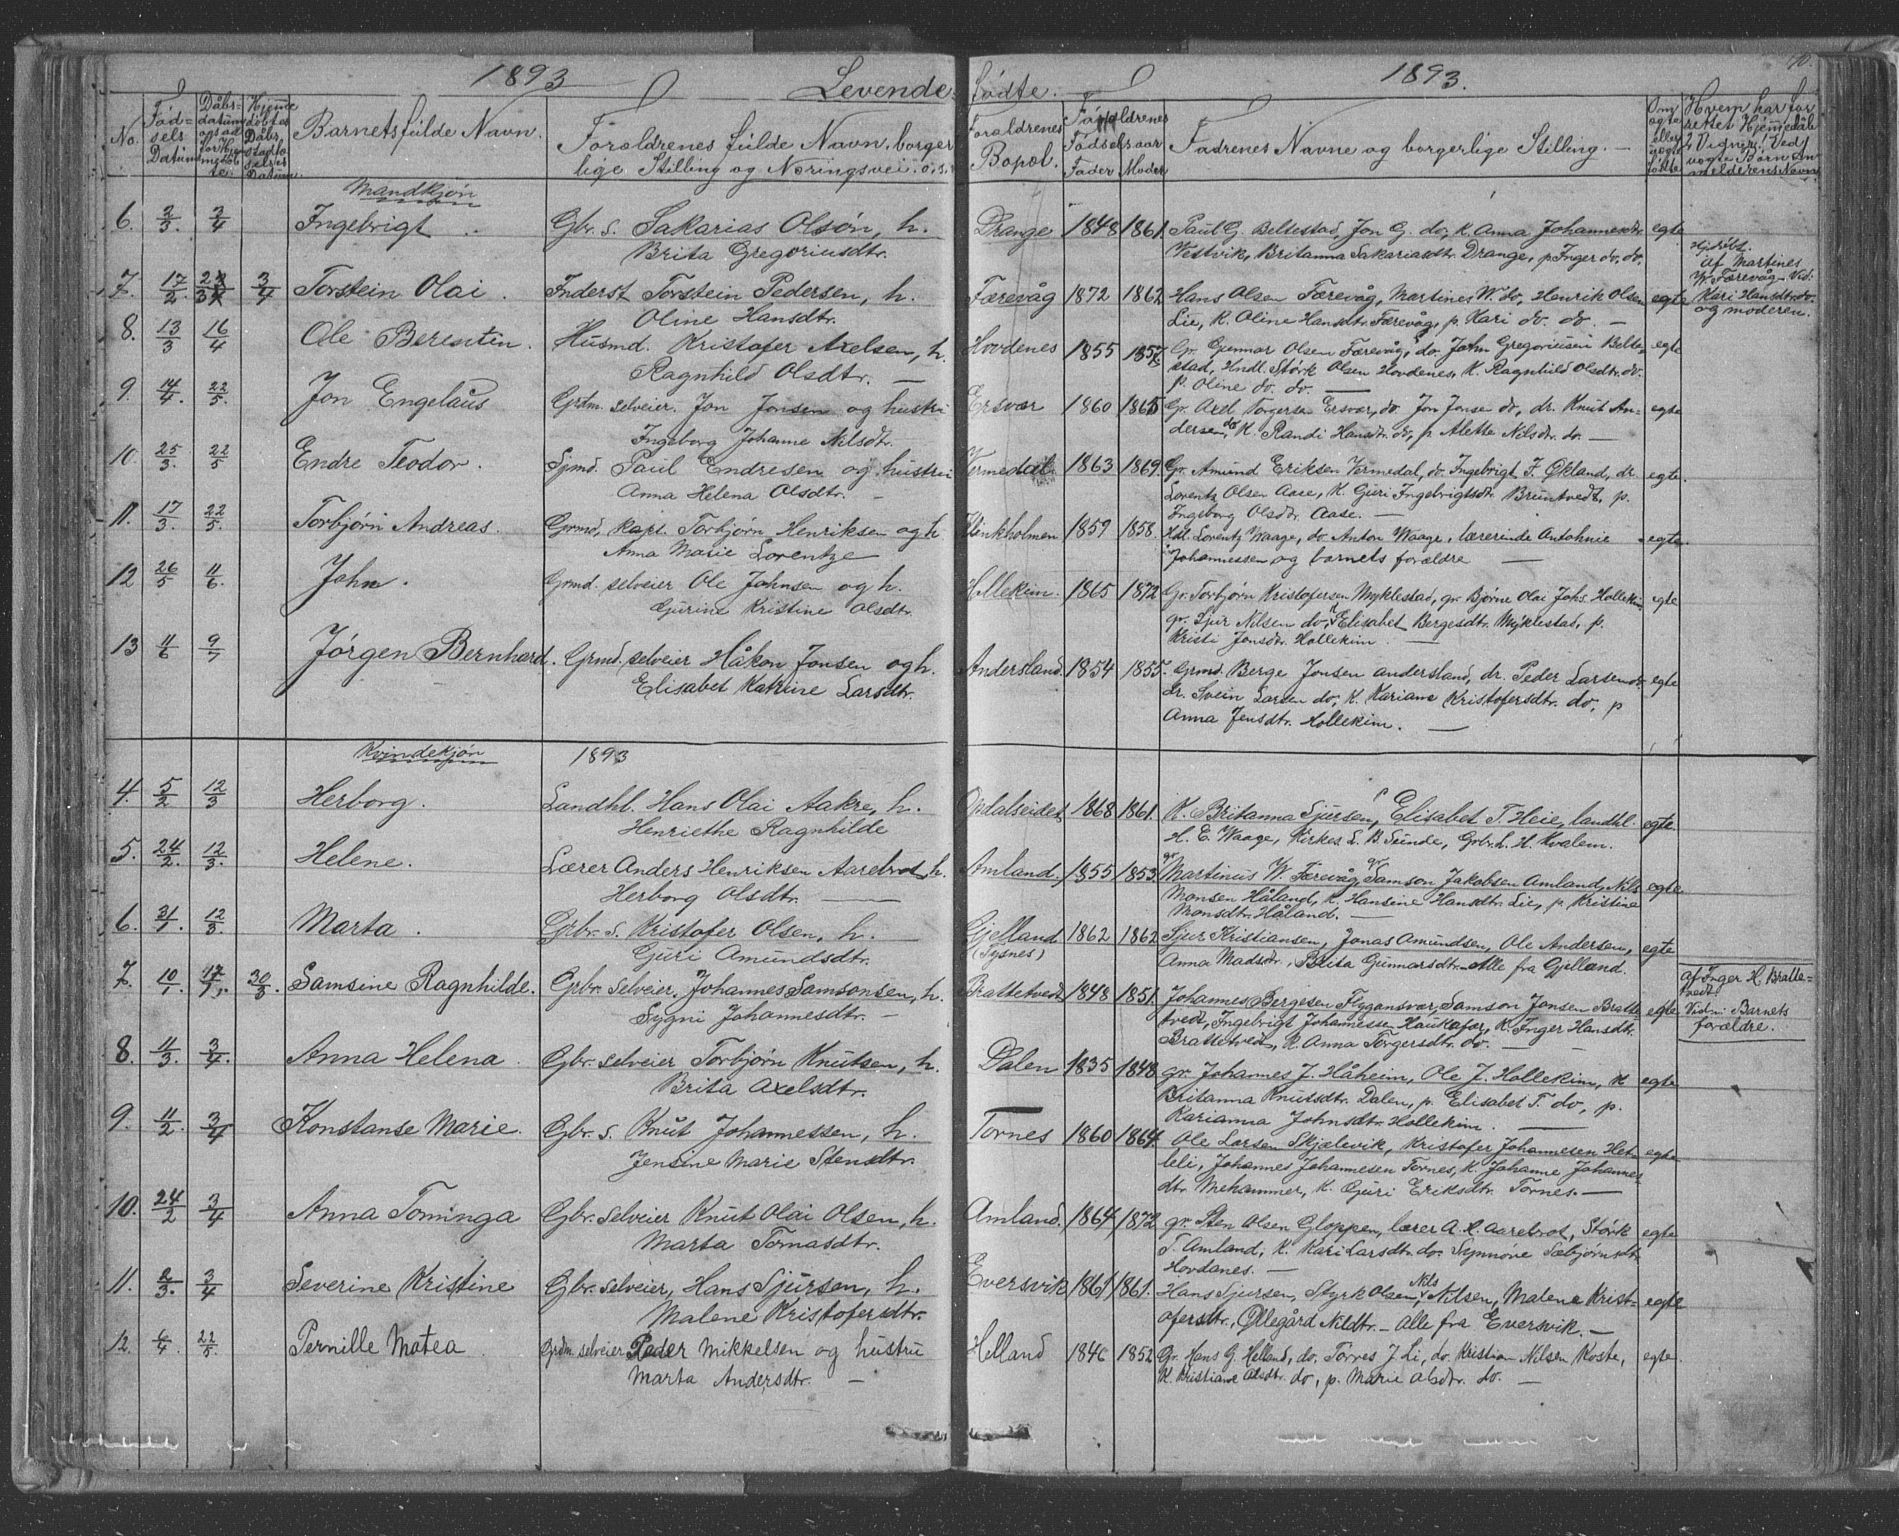 1893
Levende fødte.
1893.
No.
Fødsels Datum
Barnets fulde Navn.
Forældrenes fulde Navn, borgerlige Stilling og Næringsvei o.s.v.
Forældrenes Bopæl.
Forældrenes Fødselsaar
Fader Moder
Fadrenes Navne og borgerlige Stilling. —
Om egte eller uegte fødte
Mandkjøn
6. 2/3. 3/4 Ingebrigt Gbr. s. Sakarias Olsøn, h. Drange 1848 1861. Paul G. Bellestad, Jon G. do, K. Anna Johannesdtr. egte
Brita Gregoriusdtr. Vestvik, Britanna Sakariasdtr. Drange, p Inger do. do.
Hj.døbt. af Martines W. Færevåg. Vid: Kari Hansdtr. do. og moderen.
7. 17/2. 3/4 Torstein Olai. Inderst Torstein Pedersen, h. Færevåg 1872 1862 Hans Olsen Færevåg, Martines W. do, Henrik Olsen egte
Oline Hansdtr. Lie, K. Oline Hansdtr. Færevåg, p. Kari do. do. —
8. 13/3 16/4 Ole Berentin. Husmd. Kristofer Axelsen, h. Hovdenes 1855 Gr. Gunnar Olsen Færevåg, do. John Gregoriusen Belle- egte
Ragnhild Olsdtr. — stad, Hndl. Størk Olsen Hovdenes, K. Ragnhild Olsdtr. do.
p. Oline do. do. —
9. 14/4. 22/5. Jon Engelaus Grdm. selveier. Jon Jonsen og hustru Ersvær 1860 1865 Gr. Axel Torgersen Ersvær, do. Jon Jonsen do, dr. Knut An- egte
Ingeborg Johanne Nilsdtr. dersen do, K. Randi Hansdtr. do, p Alette Nilsdtr. do. —
10. 25/3. 22/5 Endre Teodor. Grmd. Paul Endresen og hustru Vermedal 1863 1869. Gr. Amund Eriksen Vermedal, do. Ingebrigt J. Økland, dr. egte.
Anna Helena Olsdtr. — Lorentz Olsen Aase, K. Guri Ingebrigtsdtr. Bruntvedt, p.
Ingeborg Olsdtr. Aase. —
11. 17/3. 22/5. Torbjørn Andreas. Grmd, kapt. Torbjørn Henriksen og h Flinkholmen 1859 1858. Hdl. Lorentz Waage, do. Anton Waage, lærerinde Antohnie egte.
Anna Marie Lorentze Johannessen og barnets forældre —
12 26/5 11/6. John. Grmd. selveier Ole Johnsen og h. Hollekim. 1865 1872 Gr. Torbjørn Kristofersen Myklestad, gr. Bjørne Olai Johs. Hollekim egte
Gurine Kristine Olsdtr. gr. Sjur Nilsen do, K Elisabet Bergesdtr. Myklestad, p.
Kristi Jonsdtr. Hollekim —
13 11/6 9/7 Jørgen Bernhard. Grmd. selveier Håkon Jonsen og h. Andersland. 1854 1855. Grmd. Berge Jonsen Andersland, dr. Peder Larsen do. egte
Elisabet Katrine Larsdtr. dr. Svein Larsen do, K. Kariane Kristofersdtr. do, p
Anna Jensdtr. Hollekim. —
Kvindekjøn 1893
4. 5/2 12/3 Herborg. Landhl. Hans Olai Aakre, h. Opdalseidet 1868 1861. K. Britanna Sjursen, Elisabet T. Heie, landhl. egte
Henriethe Ragnhilde H. E. Waage, Kirkes. L. B. Sunde, Grbr. L. H. Kvalem.
5. 24/2. 12/3. Helene. Lærer Anders Henriksen Aarebrot, h. Amland. 1855 1853. gr Martinius W. Færevåg, gr Samson Jakobsen Amland, Nils egte
Herborg Olsdtr. — Monsen Håland, K. Hansine Hansdtr. Lie, p. Kristine
Monsdtr. Håland. —
6. 31/1. 12/3. Marta. Grbr. s. Kristofer Olsen, h. Gjelland (Tysnes) 1862 1862 Sjur Kristiansen, Jonas Amundsen, Ole Andersen, egte
Guri Amundsdtr. Anna Madsdtr, Brita Gunnarsdtr. Alle fra Gjelland.
7. 10/1. 30/3. Samsine Ragnhilde. Gbr. Selveier. Johannes Samsonsen, h. Brattetvedt 1848 1851. Johannes Bergesen Flygansvær, Samson Jonsen Bratte- egte
Sygni Johannesdtr. — tvedt, Ingebrigt Johannessen Haukafær, K. Inger Hansdtr.
Brattetvedt, K. Anna Torgersdtr. do. —
af Inger H. Bratte-tvedt. Vidn: Barnets forældre.
8. 11/3. 3/4. Anna Helena. Gbr. selveier Torbjørn Knutsen, h. Dalen 1835 1848 gr. Johannes J. Håheim, Ole J. Hollekim, K egte
Brita Axelsdtr. Britanna Knutsdtr. Dalen, p. Elisabet T. do, p.
Karianna Johnsdtr. Hollekim. —
9. 11/2. 3/4 Konstanse Marie. Gbr. s. Knut Johannessen, h. Tornes 1860 1864. Ole Larsen Skjælevik, Kristofer Johannesen Het- egte
Jensine Marie Stensdtr. leli, Johannes Johannesen Tornes, K. Johanne Johannes
dtr. Mehammer, K. Guri Eriksdtr. Tornes. —
10. 24/2 3/4 Anna Tominga Gbr. selveier Knut Olai Olsen, h. Amland, 1864 1872 gr. Sten Olsen Gloppen, lærer A. H. Aarebrot, Størk egte
Marta Tomasdtr. T. Amland, K. Kari Larsdtr. do. Synnøve Sæbjørnsdtr.
Hovdanes. —
11. 2/3. 3/4 Severine Kristine Gbr. selveier, Hans Sjursen, h. Eversvik 1861 1861. Hans Sjursen, Styrk Olsen, Nils Nilsen, Malene Krist- egte
Malene Kristofersdtr. ofersdtr., Øllegård Nilsdtr. — Alle fra Eversvik. —
12. 6/4 22/5 Pernille Matea Grdm. selveier Peder Mikkelsen og hustru Helland 1846 1852 Gr. Hans G. Helland, do. Tørres J. Li, do. Kristian Nilsen Koste, egte
Marta Andersdtr. — K. Kristiane Olsdtr. do, p. Marie Olsdtr. do. —